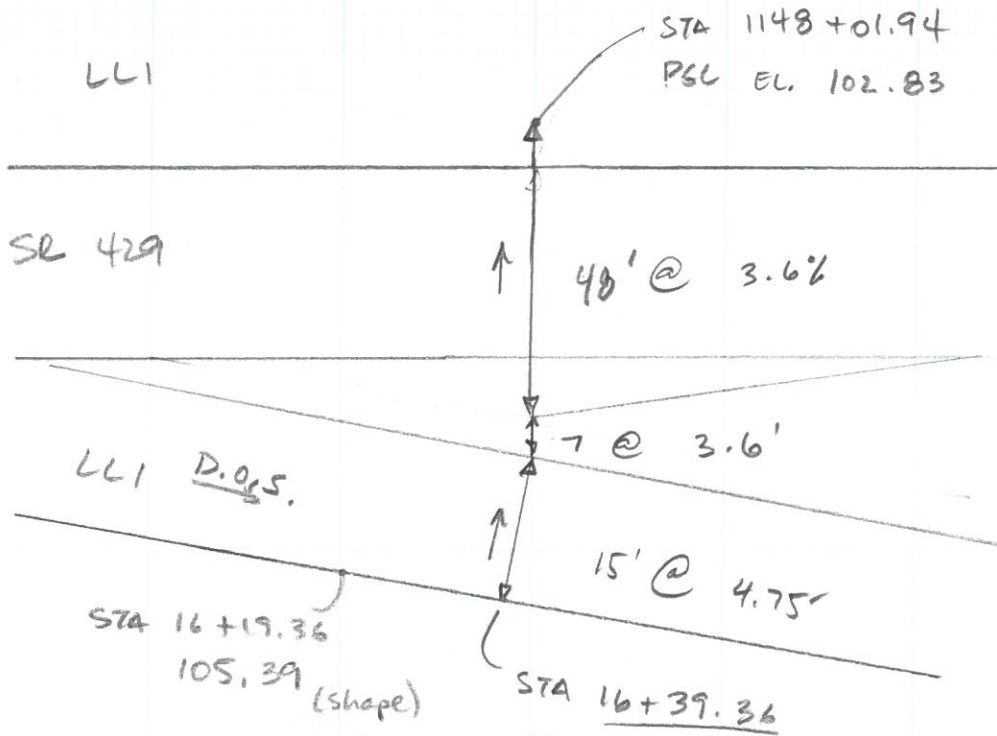 STA 1148+01.94
PGL EL. 102.83
LL1
SR 429
48' @ 3.6%
7 @ 3.6'
LL1 D.O.S.
15' @ 4.75
STA 16+19.36
105.39 (shape)
STA 16+39.36